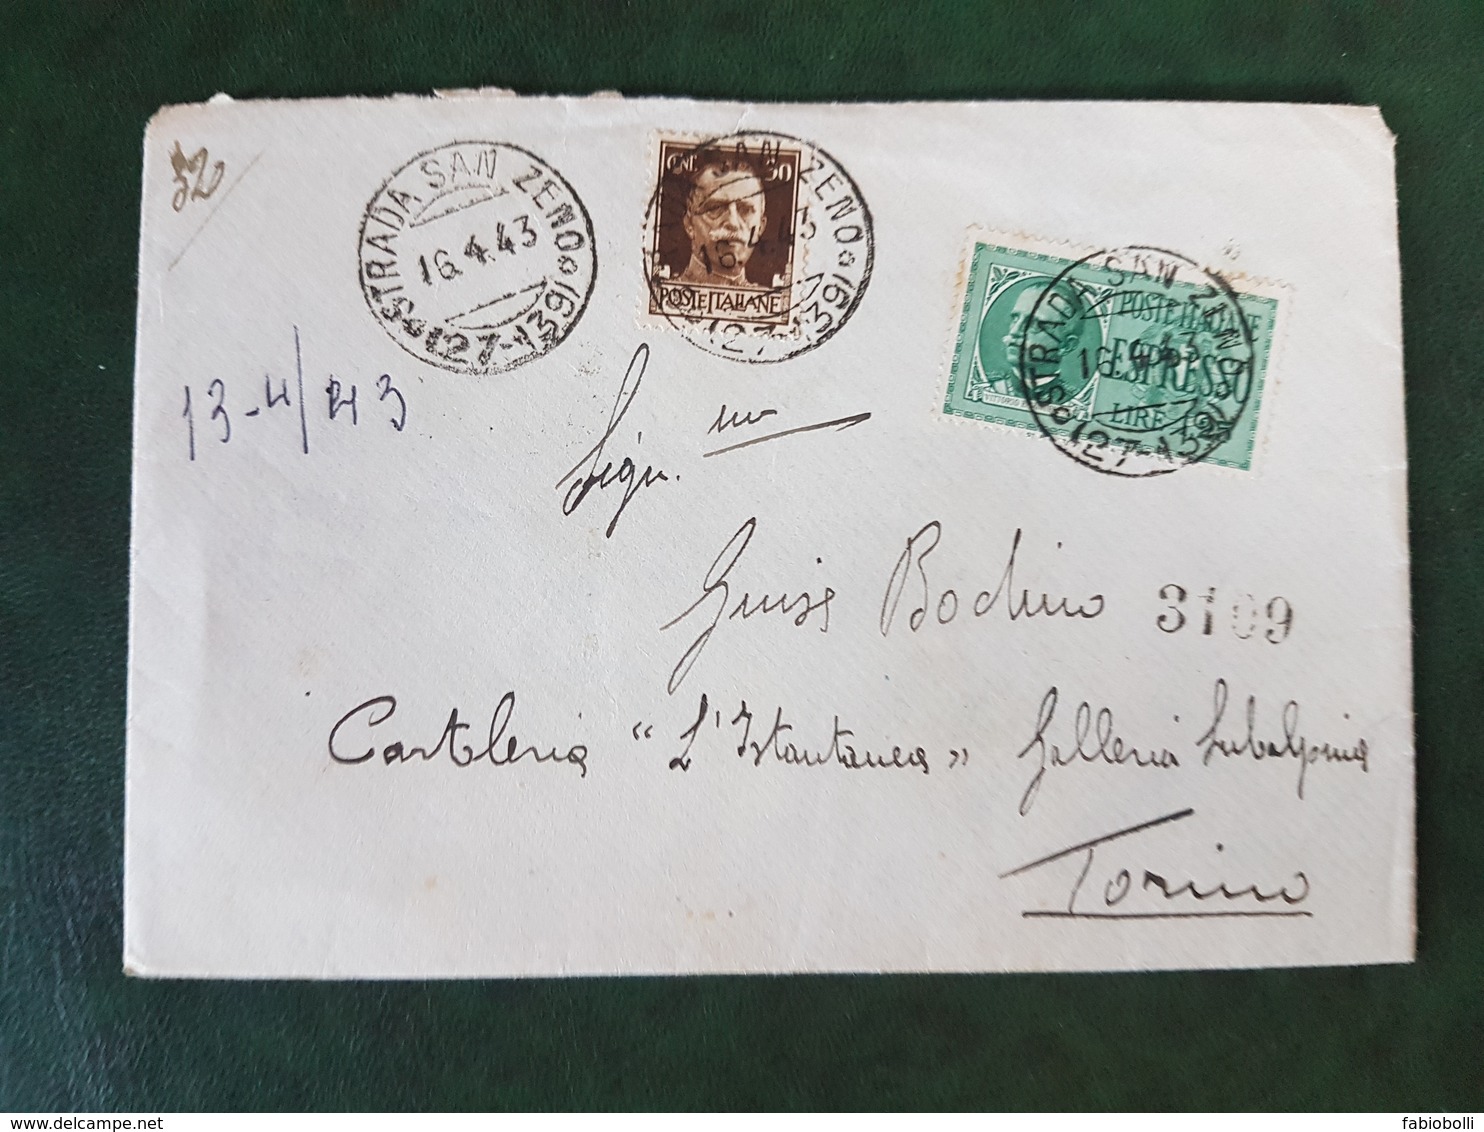 52
STRADA SAN ZENO (127-139)
16.4.43
CENT. 30
POSTE ITALIANE
SAN ZENO (127-139)
16.4.43
POSTE ITALIANE
ESPRESSO
LIRE 1,25
STRADA SAN ZENO (127-139)
16.4.43
13-4/43
Sign. na
Bochino 3109
Cartoleria "L'Istantanea" Galleria Subalpina
Torino
fabiobolli